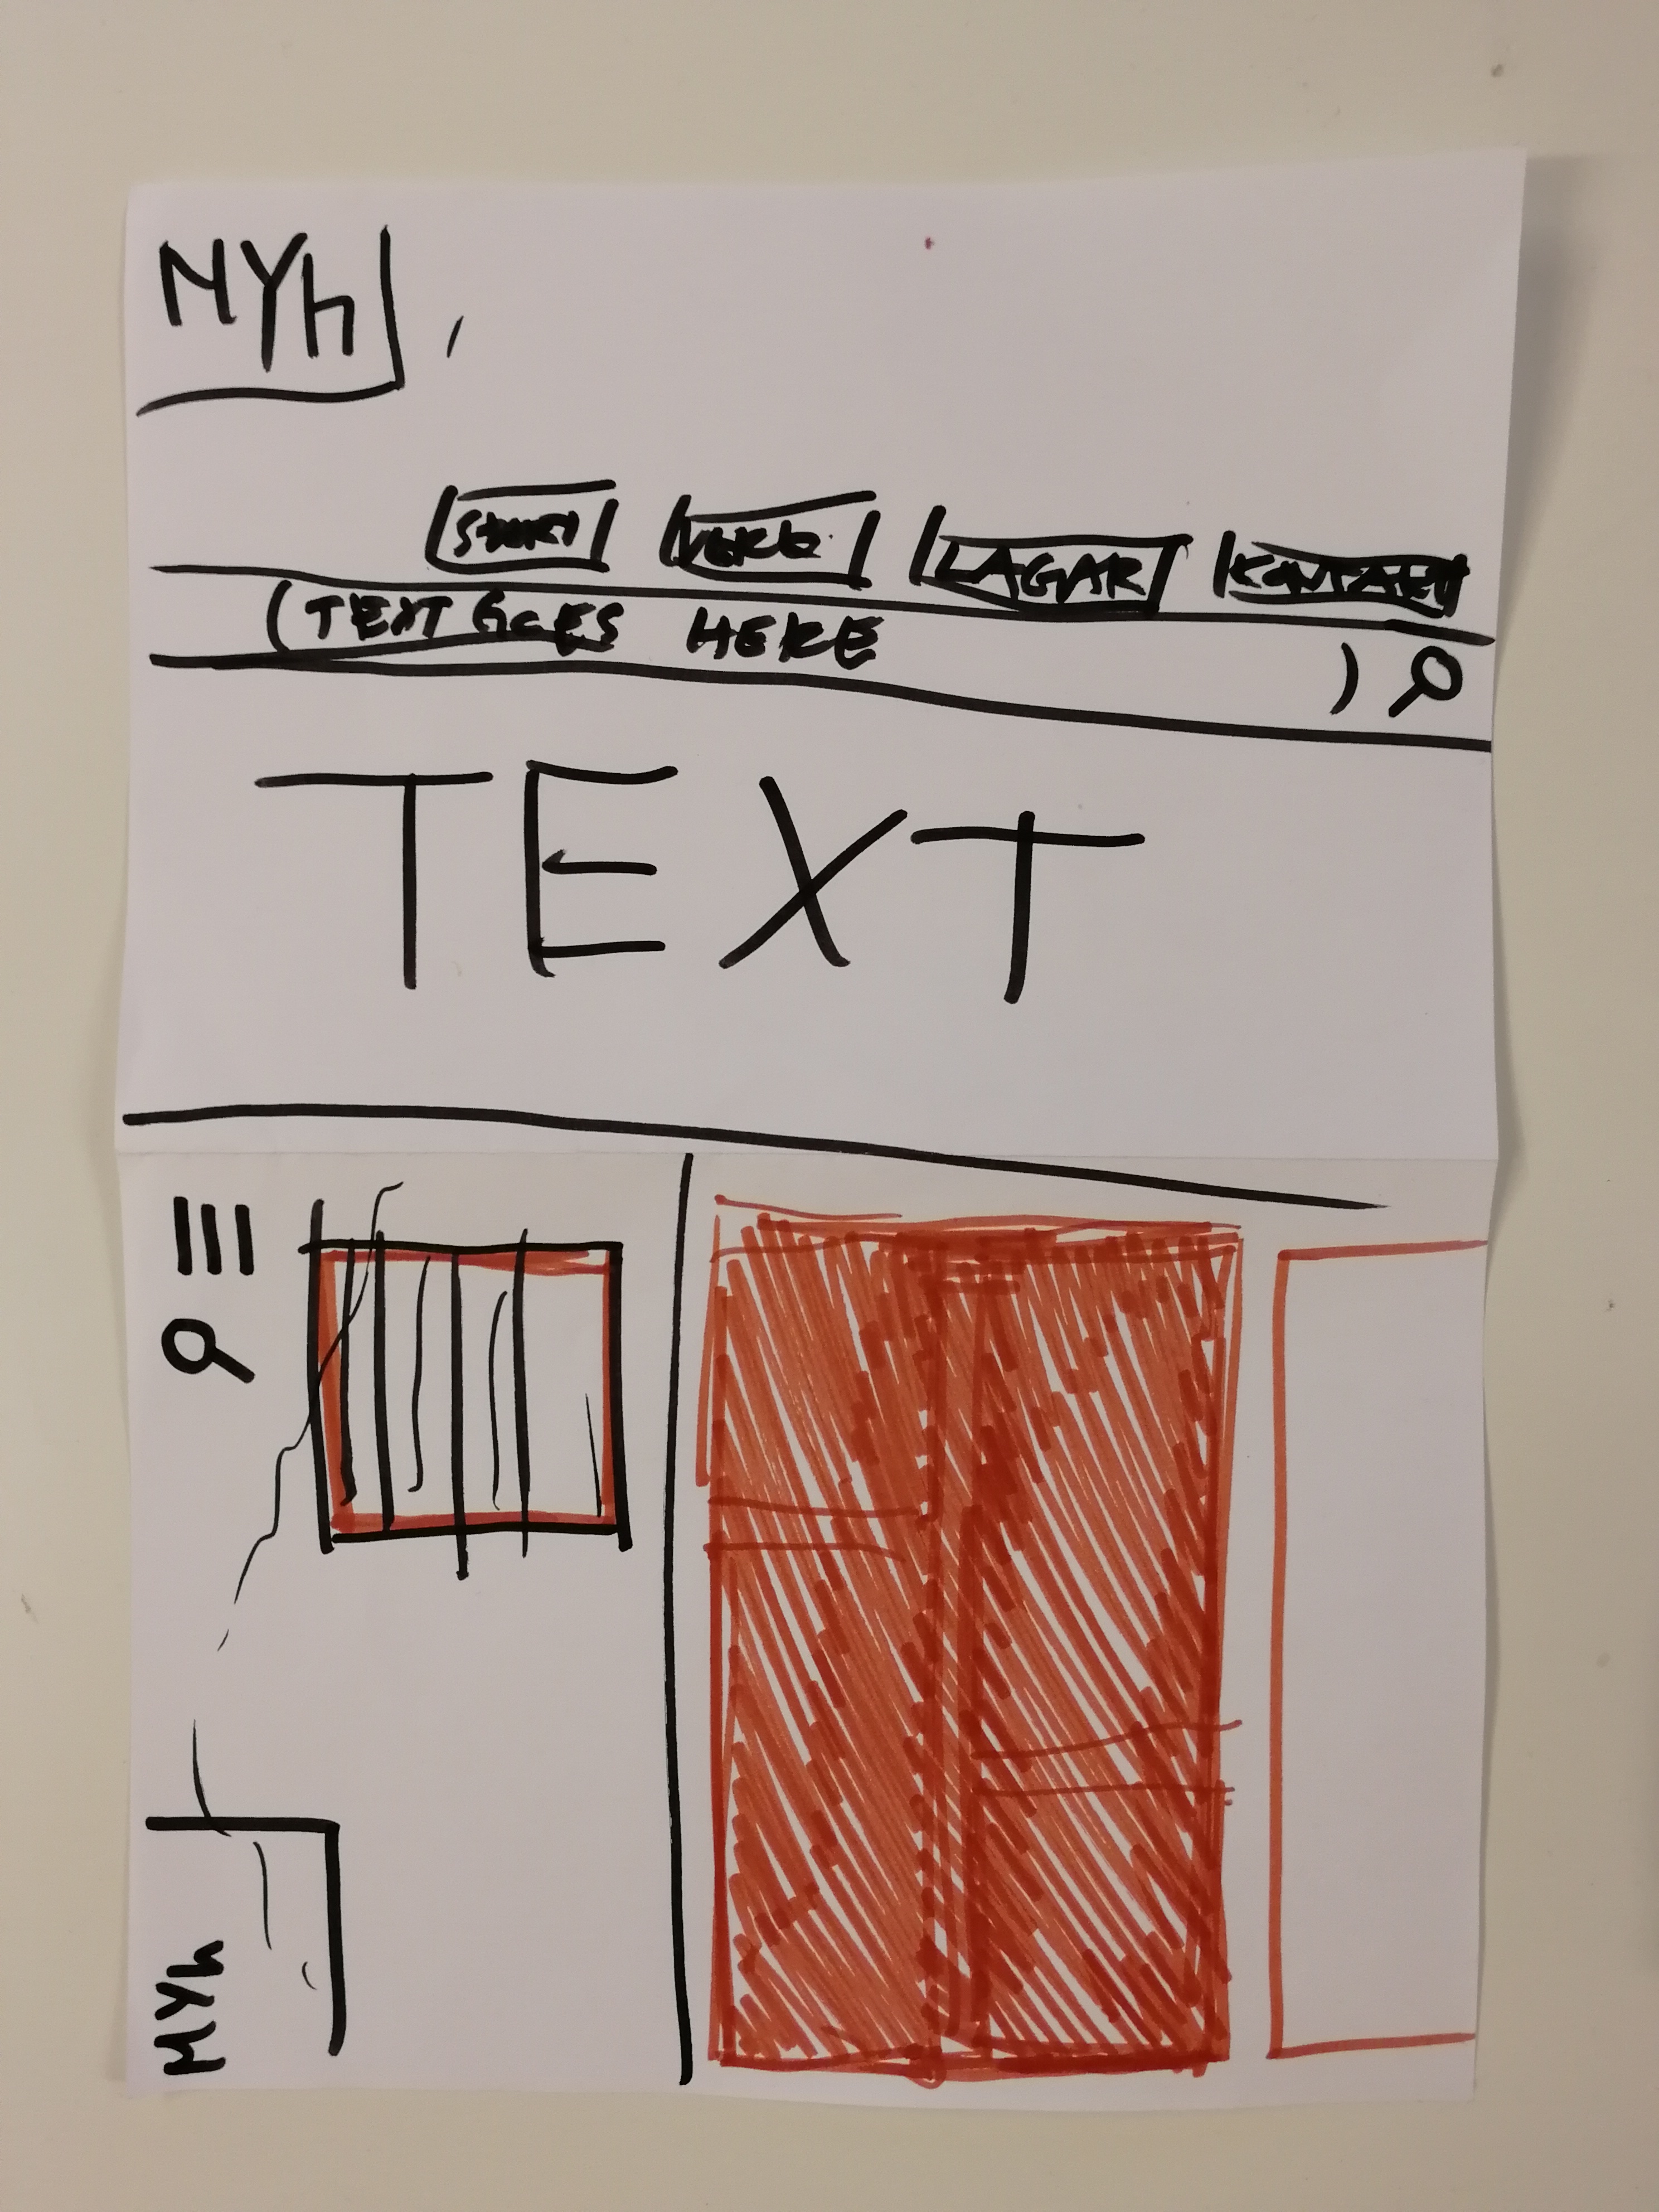 MYh
START LAGAR KONTAKT
TEXT GOES HERE
TEXT
MYh